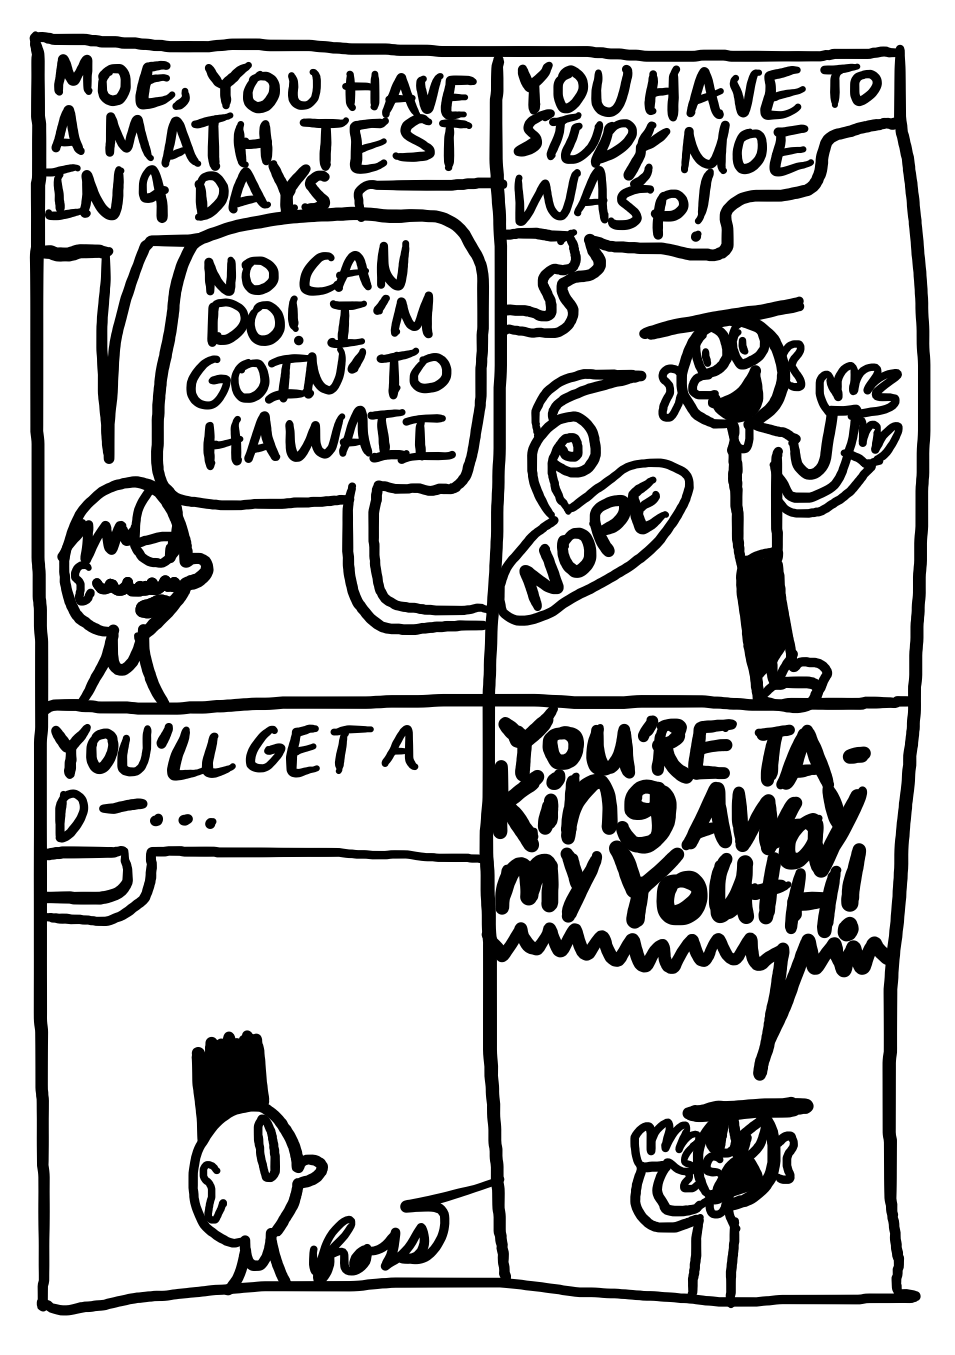 MOE, YOU HAVE
A MATH TEST
IN 9 DAYS
NO CAN
DO! I'M
GOIN' TO
HAWAII
YOU HAVE TO
STUDY, MOE
WASP!
NOPE
YOU'LL GET A
D-...
YOU'RE TA-
King AWay
MY YOUTH!
Ross